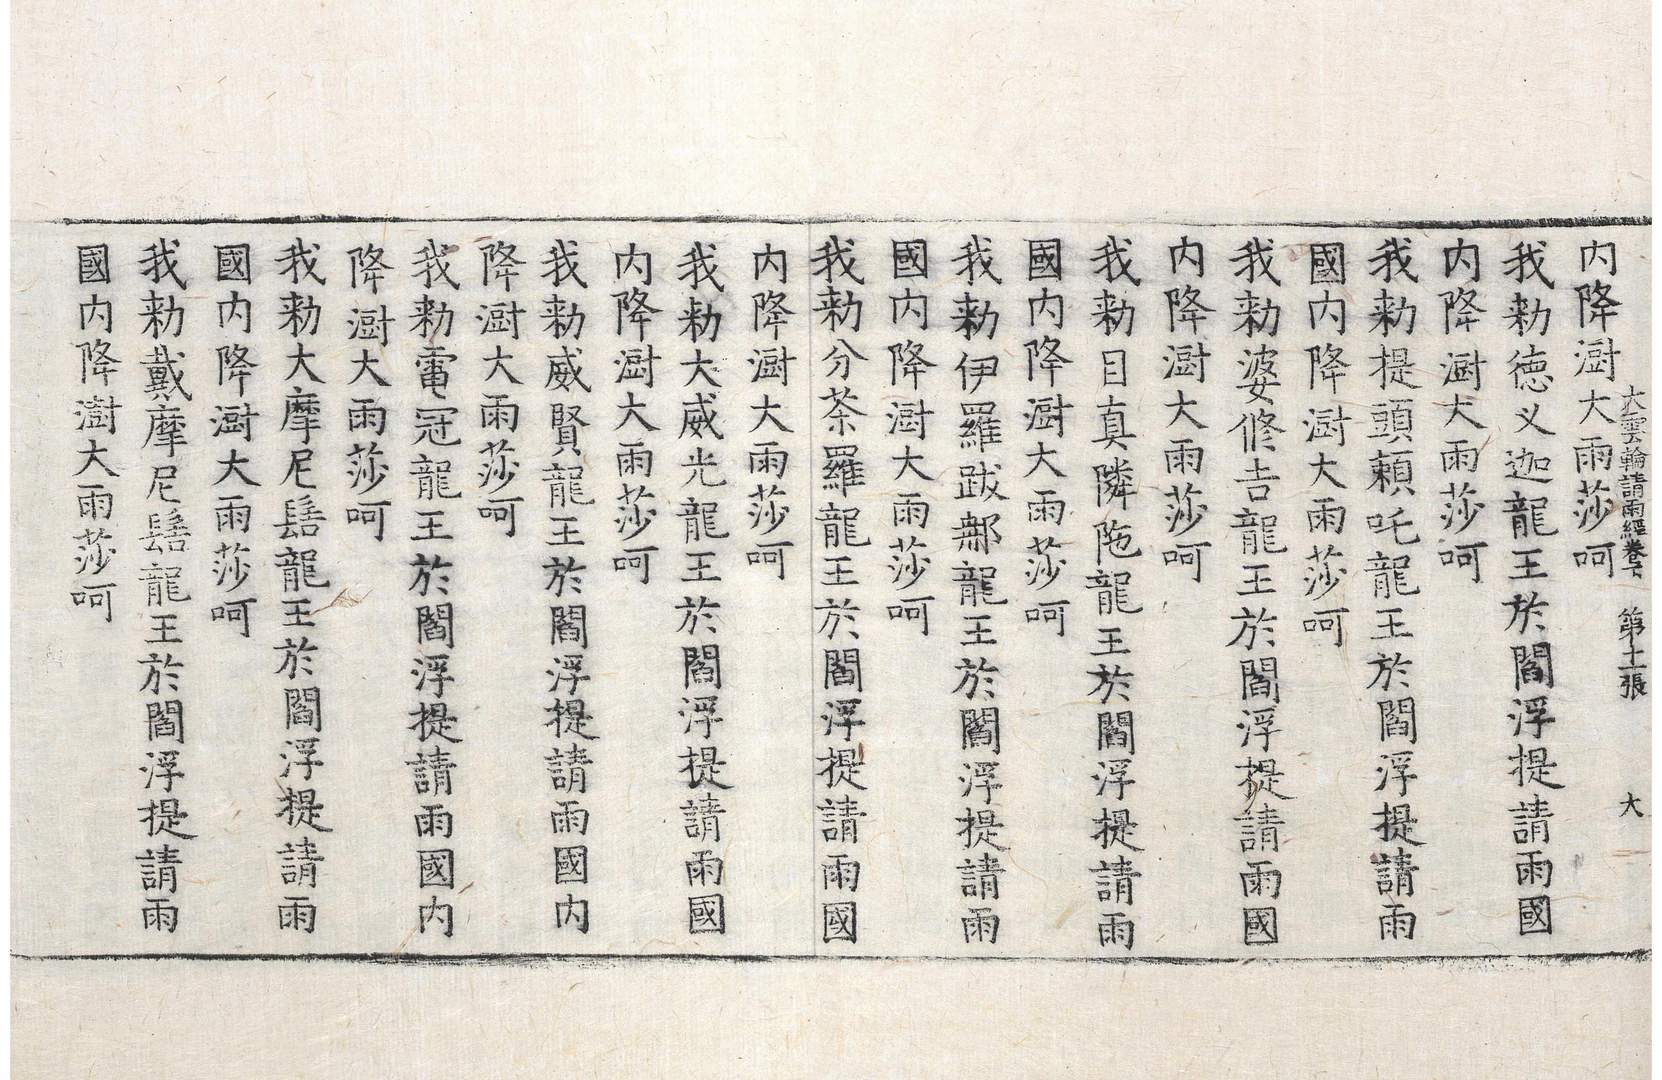 内降澍大雨莎呵
大雲輪請雨經卷下 第十一張 大
我勑德义迦龍王於閻浮提請雨國
内降澍大雨莎呵
我勑提頭賴吒龍王於閻浮提請雨
國内降澍大雨莎呵
我勑婆修吉龍王於閻浮提請雨國
内降澍大雨莎呵
我勑目真隣陁龍王於閻浮提請雨
國内降澍大雨莎呵
我勑伊羅跋那龍王於閻浮提請雨
國内降澍大雨莎呵
我勑分茶羅龍王於閻浮提請雨國
内降澍大雨莎呵
我勑大威光龍王於閻浮提請雨國
内降澍大雨莎呵
我勑威賢龍王於閻浮提請雨國内
降澍大雨莎呵
我勑電冠龍王於閻浮提請雨國内
降澍大雨莎呵
我勑大摩尼髻龍王於閻浮提請雨
國内降澍大雨莎呵
我勑戴摩尼髻龍王於閻浮提請雨
國内降澍大雨莎呵